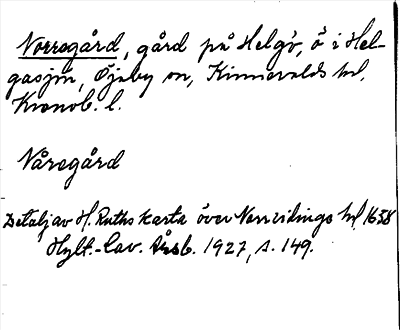 Norregård, gård på Helgö, ö i Hel-
gasjön, Öjaby sn, Kinnevalds hd,
Kronob. l.
Våregård
Detalj av H. Ruths karta över Norrvidinge hd, 1638
Hylt.-Cav. Årsb. 1927, s. 149.